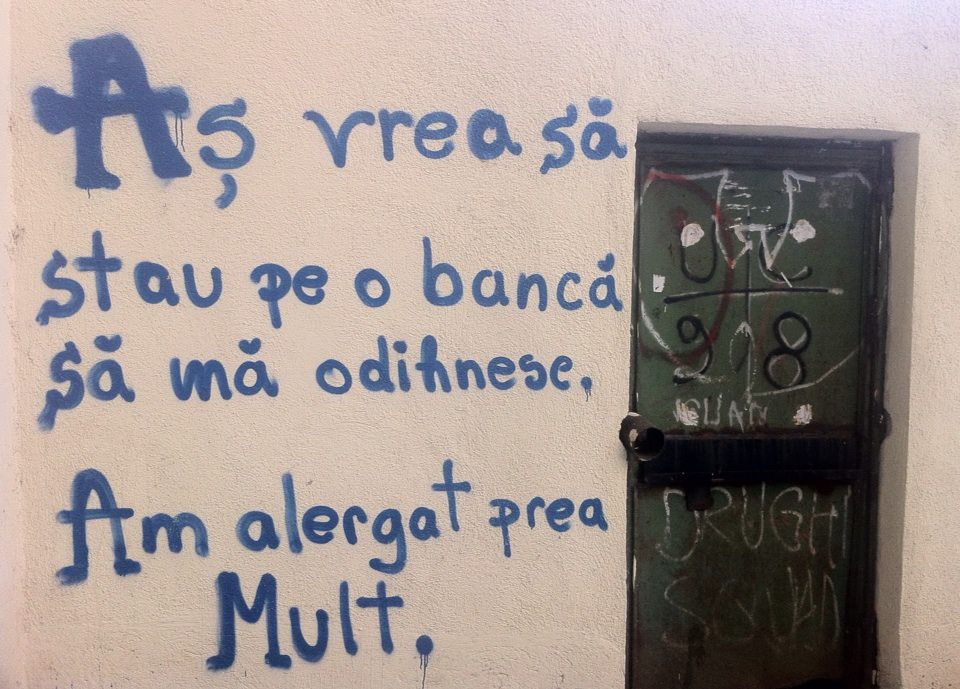 Aș vrea să
stau pe o bancă
să mă odihnesc.
Am alergat prea
Mult.
U C
9 8
DRUGH
SQUAD